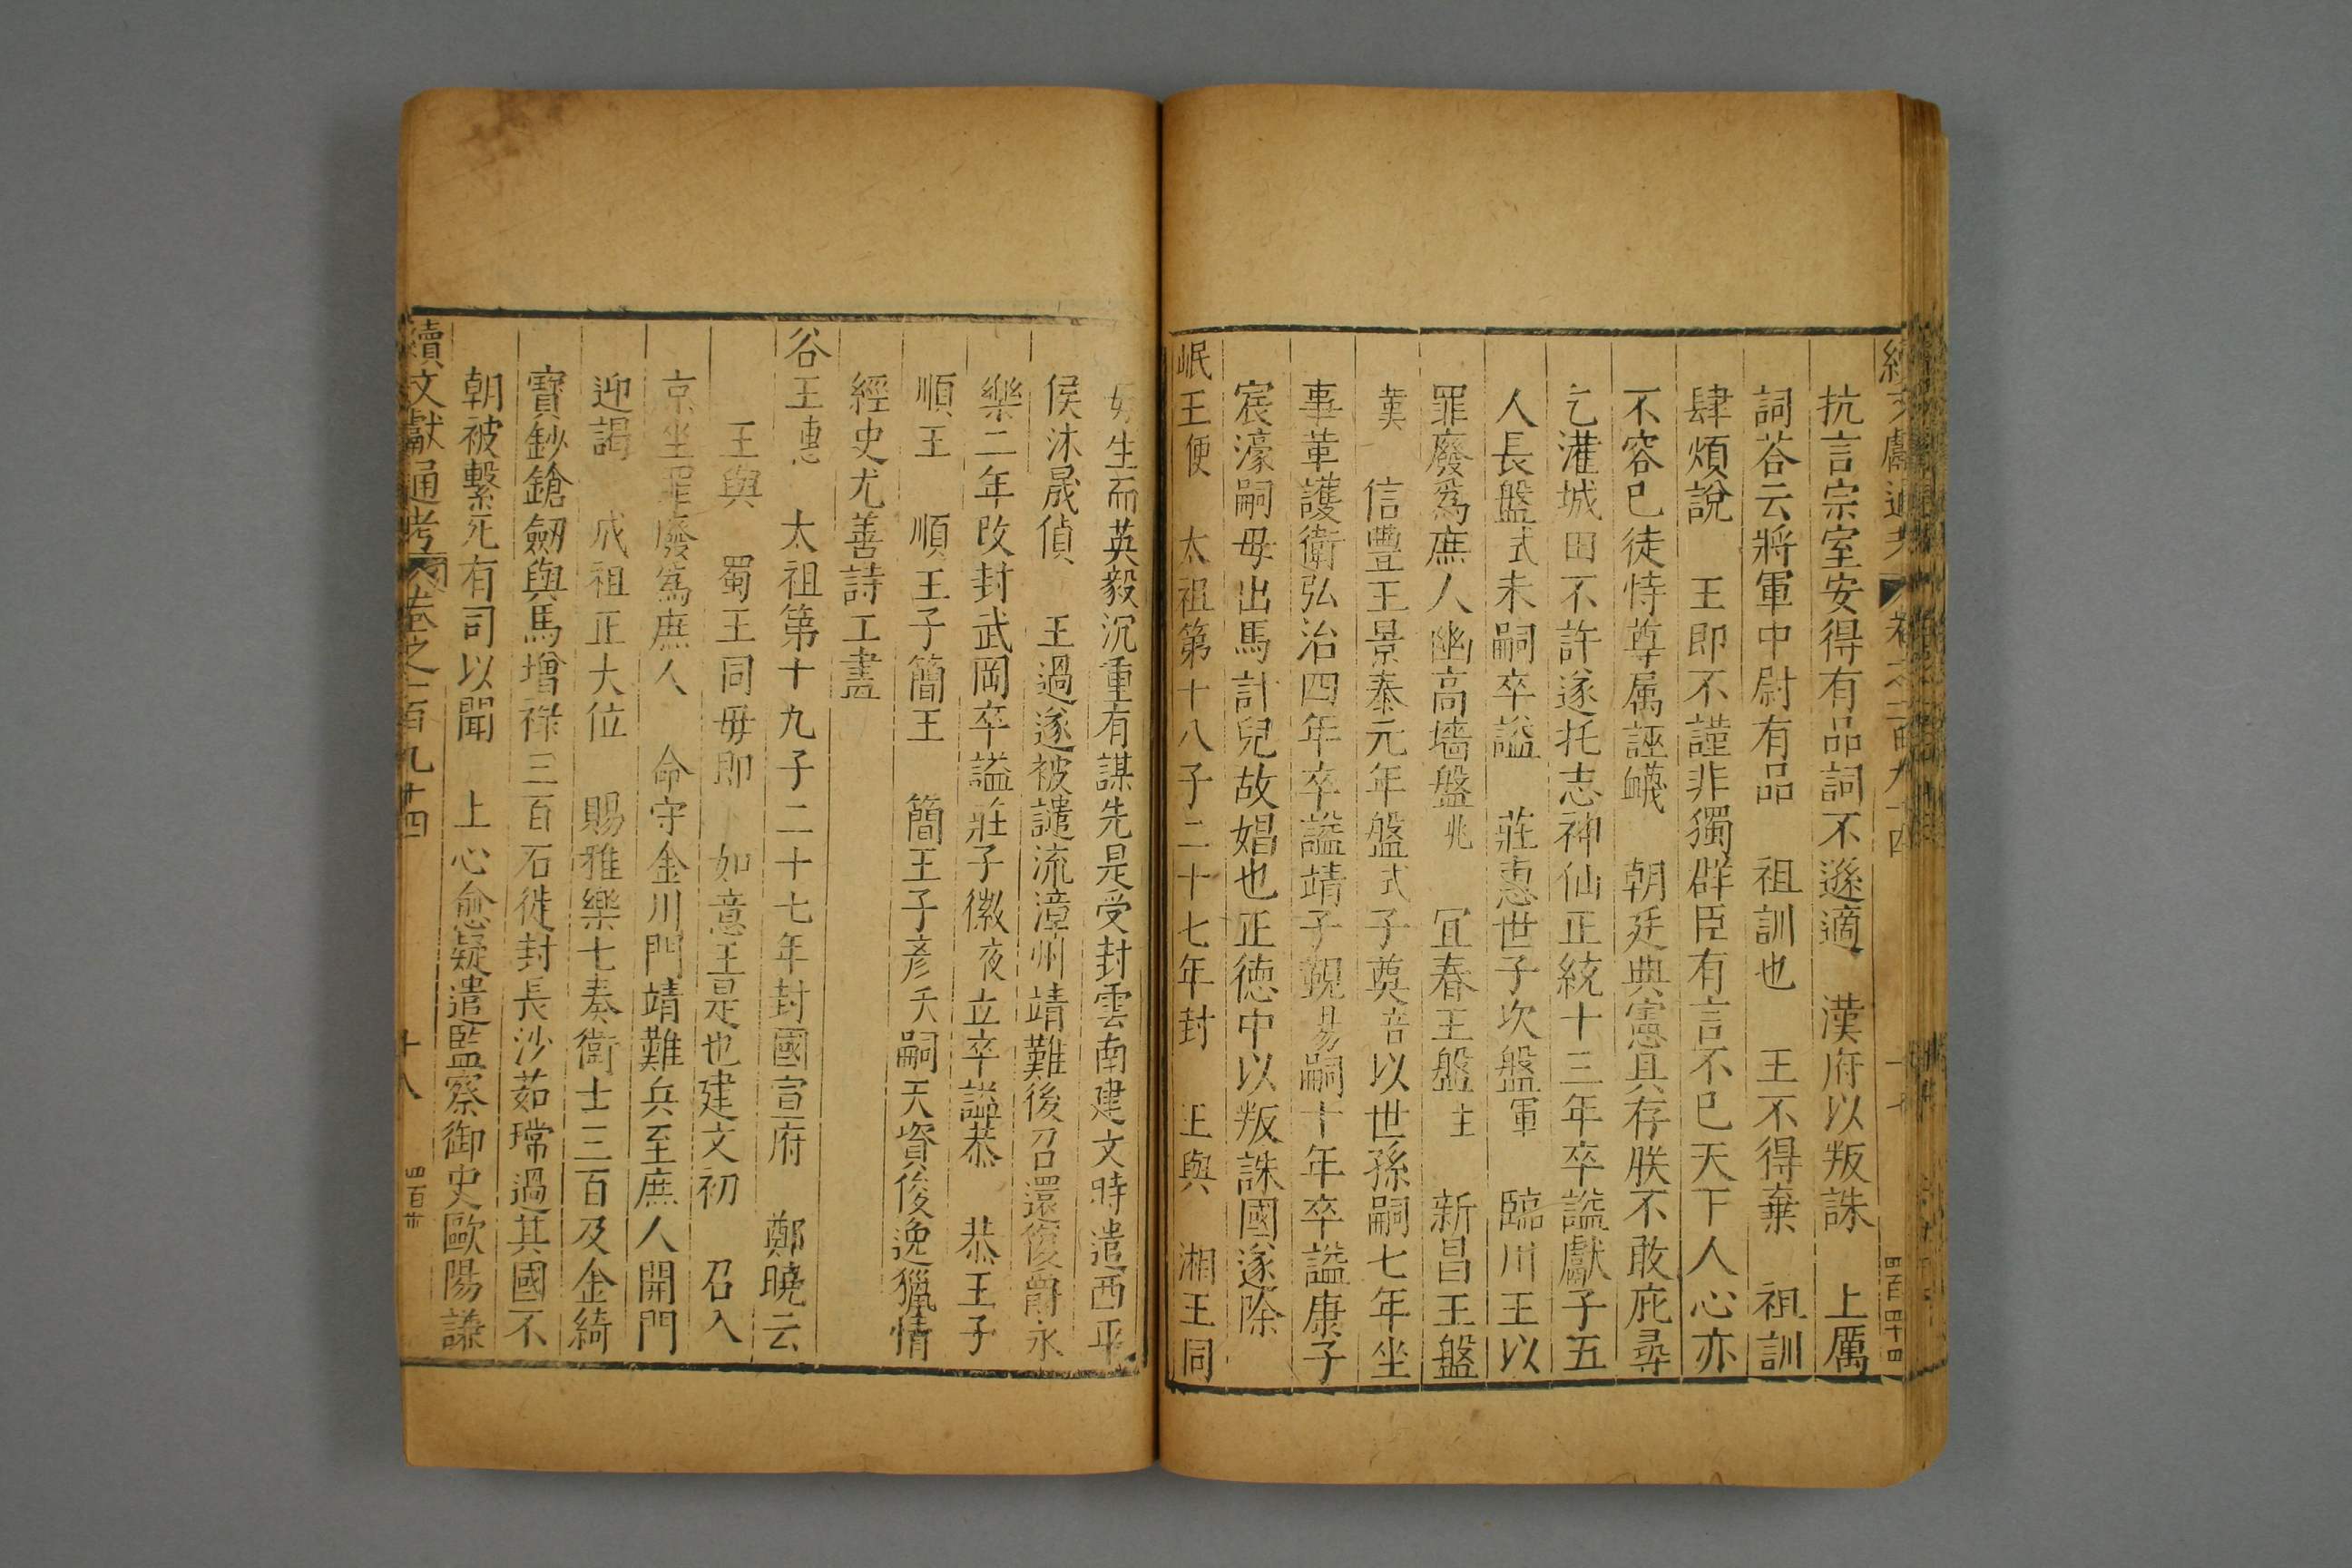 抗言宗室安得有品詞不遜適 漢府以叛誅 上厲
詞荅云將軍中尉有品 祖訓也 王不得棄 祖訓
肆煩說 王即不謹非獨群臣有言不已天下人心亦
不容已徒恃尊属誣衊 朝廷典憲具存朕不敢庇尋
乞灌城田不許遂托志神仙正統十三年卒謚獻子五
人長盤式未嗣卒謚 莊惠世子次盤軍 臨川王以
罪廢爲庶人幽高墻盤兆 冝春王盤主 新昌王盤
信豐王景泰元年盤式子奠咅以世孫嗣七年坐
事革護衛弘治四年卒謚靖子覲易嗣十年卒謚康子
宸濠嗣母出馬計兒故娼也正徳中以叛誅國遂除
岷王便 太祖第十八子二十七年封 王與 湘王同
母生而英毅沉重有謀先是受封雲南建文時遣西平
侯沐晟偵 王過遂被譴流漳州靖難後召還復爵永
樂二年改封武岡卒謚莊子徽立卒謚恭 恭王子
順王 順王子簡王 簡王子彥嗣天資俊逸獵情
經史尤善詩工畫
谷王惠 太祖第十九子二十七年封國宣府 鄭曉云
王與 蜀王同毋即 如意王是也建文初 召入
京坐罪廢爲庶人 命守金川門靖難兵至庶人開門
迎謁 成祖正大位 賜雅樂七奏衛士三百及金綺
寶鈔鎗劒與馬增祿三百石徙封長沙茹瑺過其國不
朝被繫死有司以聞 上心愈疑遣監察御史歐陽謙
續文獻通考 卷之二百九十四 十八 四百卅